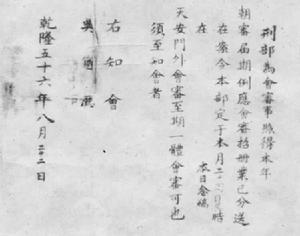 刑部為會審事照得本年
朝審届期例應會審招册業已分送
在案今本部定于本月二十 日 時
在
天安門外會審至期一體會審可也
須至知會者
右知會
吳
乾隆五十六年八月 二日